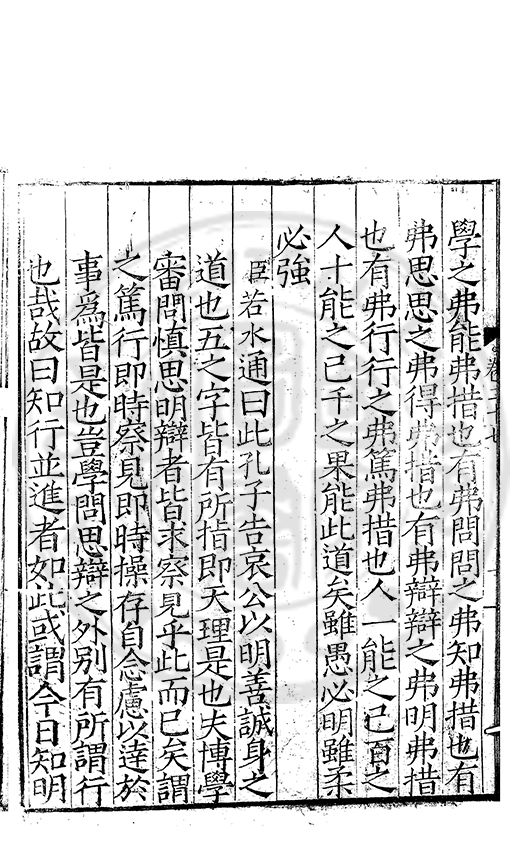 學之弗能弗措也有弗問問之弗知弗措也有
弗思思之弗得弗措也有弗辯辯之弗明弗措
也有弗行行之弗篤弗措也人一能之己百之
人十能之己千之果能此道矣雖愚必明雖柔
必強
臣若水通曰此孔子告哀公以明善誠身之
道也五之字皆有所指即天理是也夫博學
審問慎思明辯者皆求察見乎此而已矣謂
之篤行即時察見即時操存自念慮以達於
事爲皆是也豈學問思辯之外別有所謂行
也哉故曰知行並進者如此或謂今日知明